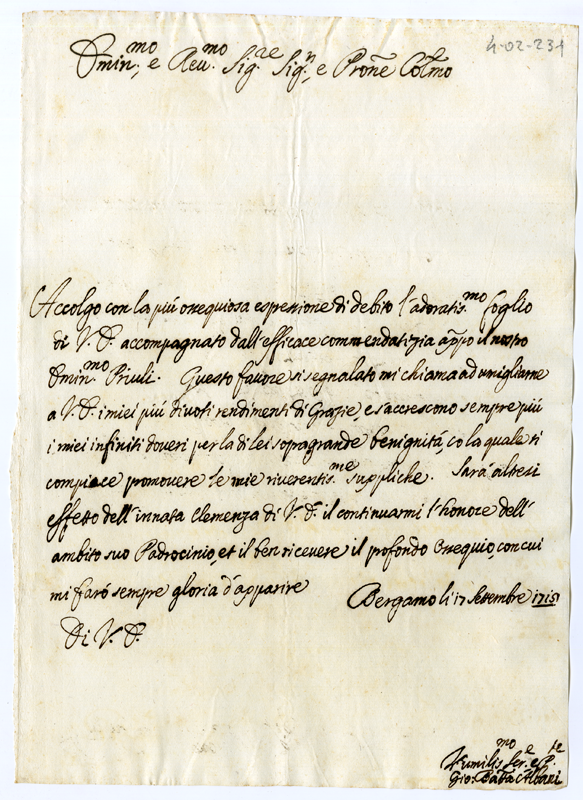 4-02-231
Emin.mo, e Reu.mo Sig.re Sig.r, e Prone Colmo
Accolgo con la più ossequiosa espressione di debito l'adoratis.mo foglio
di V. E. accompagnato dall'efficace commendatizia appo il nostro
Emin.mo Priuli. Questo fauore sì segnalato mi chiama ad umigliarne
a V. E. i miei più diuoti rendimenti di Grazie, e s'accrescono sempre più
i miei infiniti doueri per la di lei sopragrande benignità, co la quale si
compiace promouere le mie riuerentis.me suppliche. Sarà altresì
effetto dell'innata Clemenza di V. E. il continuarmi l'honore dell'
ambito suo Padrocinio, et il ben riceuere il profondo Ossequio, con cui
mi farò sempre gloria d'apparire
Bergamo li 17 Settembre 1715
Di V. E.
Humilis.mo Ser.e
Gio: Batta Albani